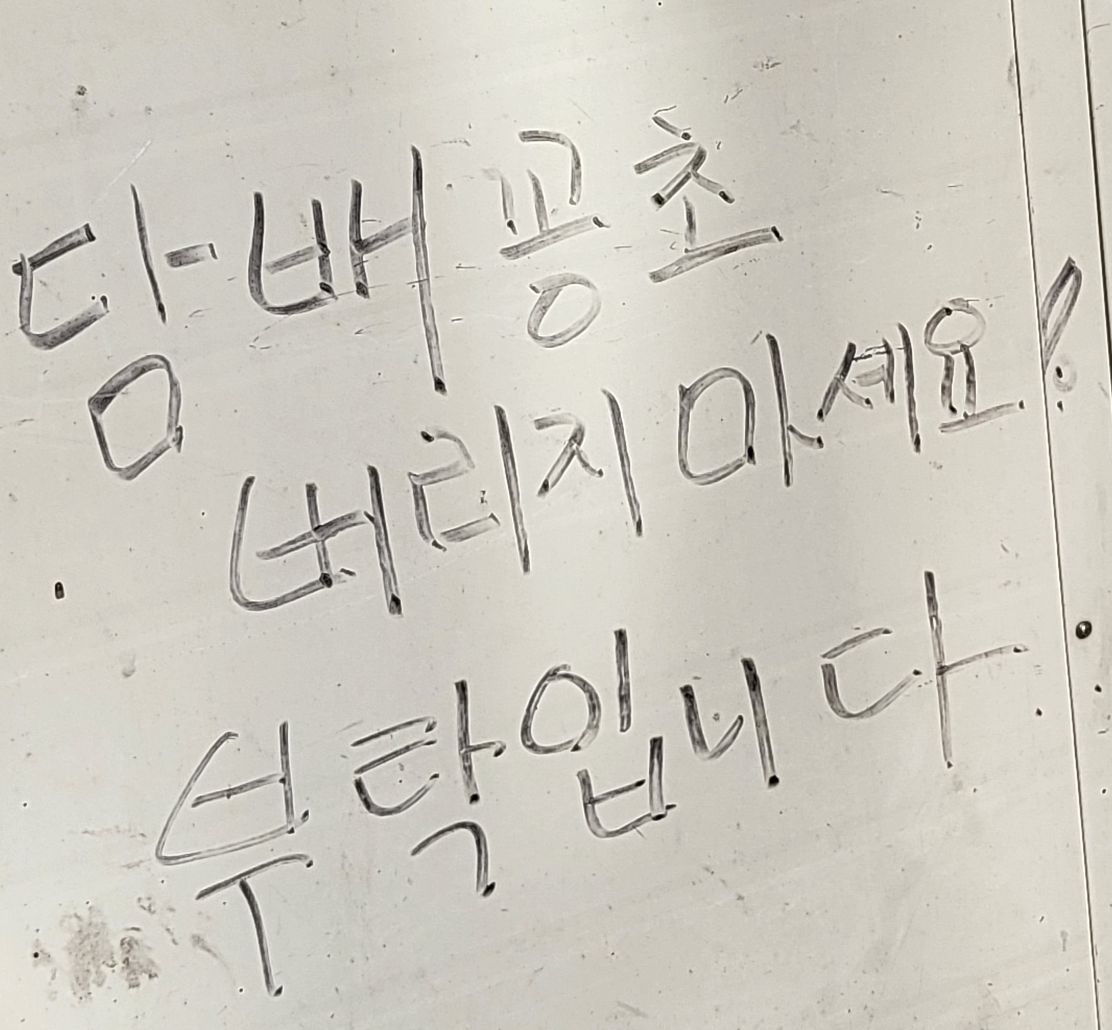 담배꽁초
버리지 마세요!
부탁입니다